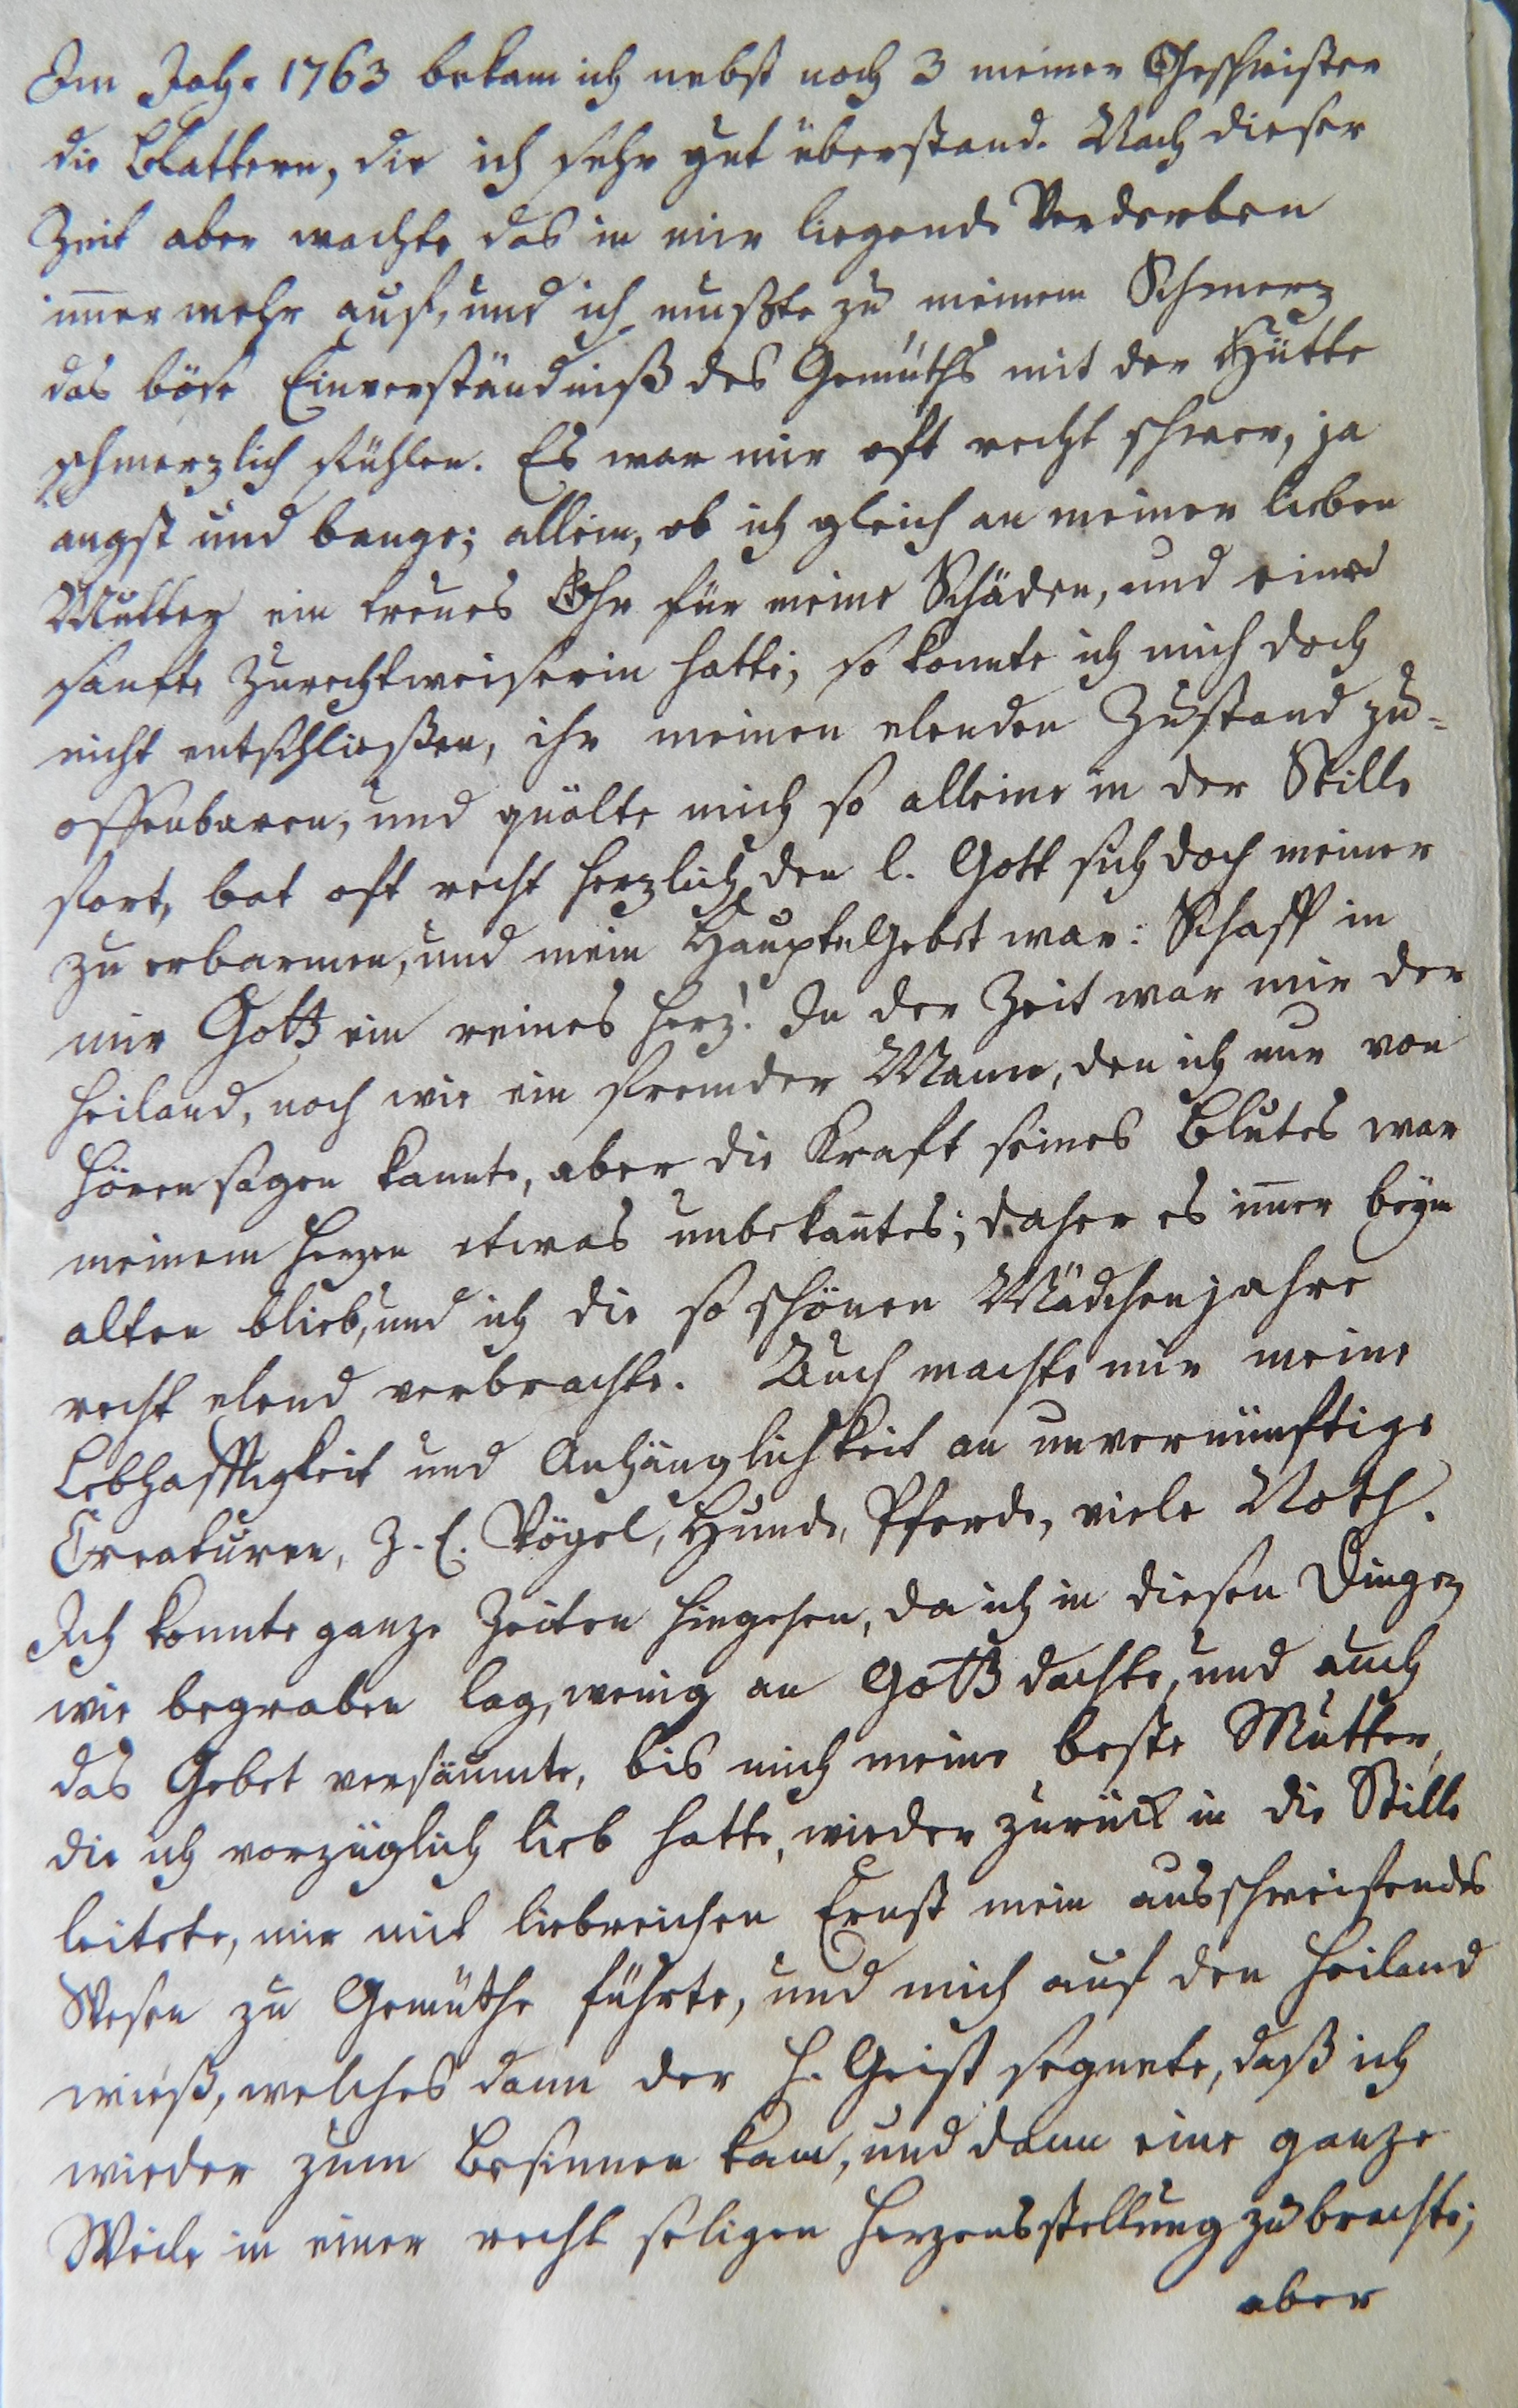 Im Jahr 1763 bekam ich nebst noch 3 meiner Geschwister
die Blattern, die ich sehr gut überstand. Nach dieser
Zeit aber wachte das in mir liegende Verderben
im̄er mehr auf, und ich mußte zu meinem Schmerz
das böse Einverständniß des Gemüths mit der Hütte
schmerzlich fühlen. Es war mir oft recht schwer, ja
angst und bange; allein, ob ich gleich an meiner lieben
Mutter ein treues Ohr für meine Schäden, und eine
sanfte Zurechtweiserin hatte; so konnte ich mich doch
nicht entschließen, ihr meinen elenden Zustand zu=
offenbaren, und quälte mich so alleine in der Stille
fort, bat oft recht herzlich den l. Gott sich doch meiner
zu erbarmen, und mein Haupt Gebet war: Schaff in
mir Gott ein reines Herz! In der Zeit war mir der
Heiland, noch wie ein fremder Mann, den ich nur von
hören sagen kannte, aber die Kraft seines Blutes war
meinem Herzen etwas unbekan̄tes; daher es im̄er beym
alten blieb, und ich die so schönen Mädchenjahre
recht elend verbrachte. Auch machte mir meine
Lebhafftigkeit und Anhänglichkeit an unvernünftige
Creaturen, z. E. Vögel, Hunde, Pferde, viele Noth.
Ich konnte ganze Zeiten hingehen, da ich in diesen Dingen
wie begraben lag, wenig an Gott dachte, und auch
das Gebet versäumte, bis mich meine beste Mutter,
die ich vorzüglich lieb hatte, wieder zurück in die Stille
leitete, mir mit liebreichen Ernst mein ausschweifendes
Wesen zu Gemüthe führte, und mich auf den Heiland
wieß, welches dann der H. Geist segnete, daß ich
wieder zum Besinnen kam, und dann eine ganze
Weile in einer recht seligen Herzensstellung zubrachte;
aber